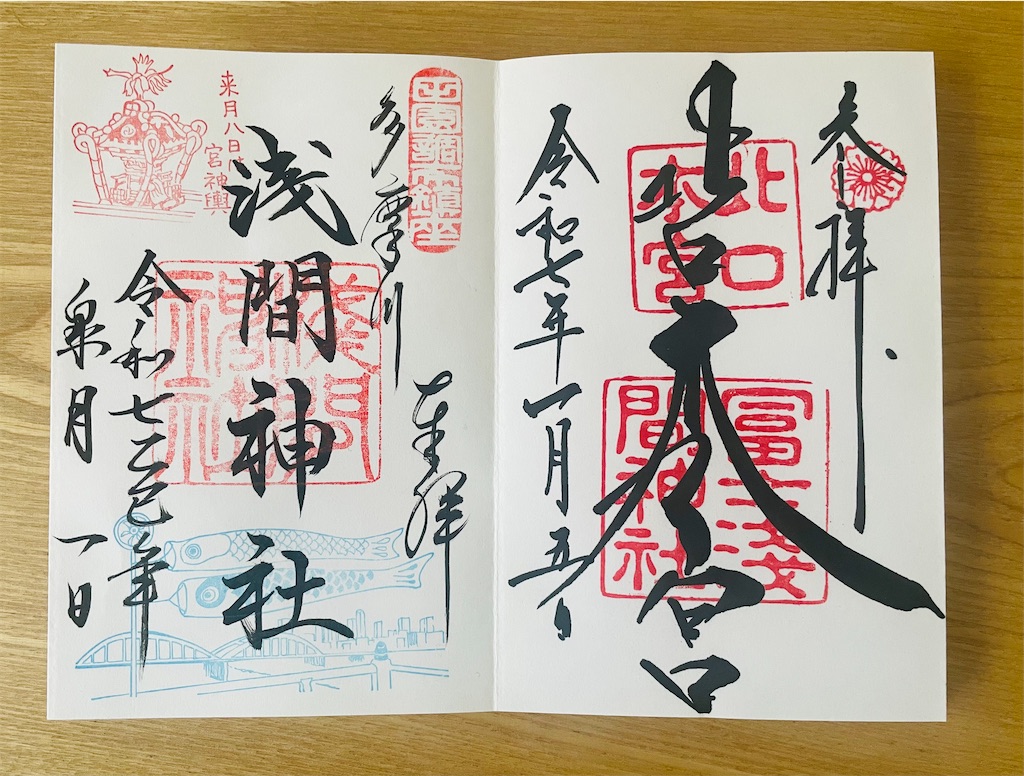 参拝
北口本宮
北口
本宮
冨士浅
間神社
令和七年一月五日
田園調布鎮座
奉拝
多摩川
浅間神社
浅間
神社
来月八日
宮神輿
令和七乙巳年
皐月一日